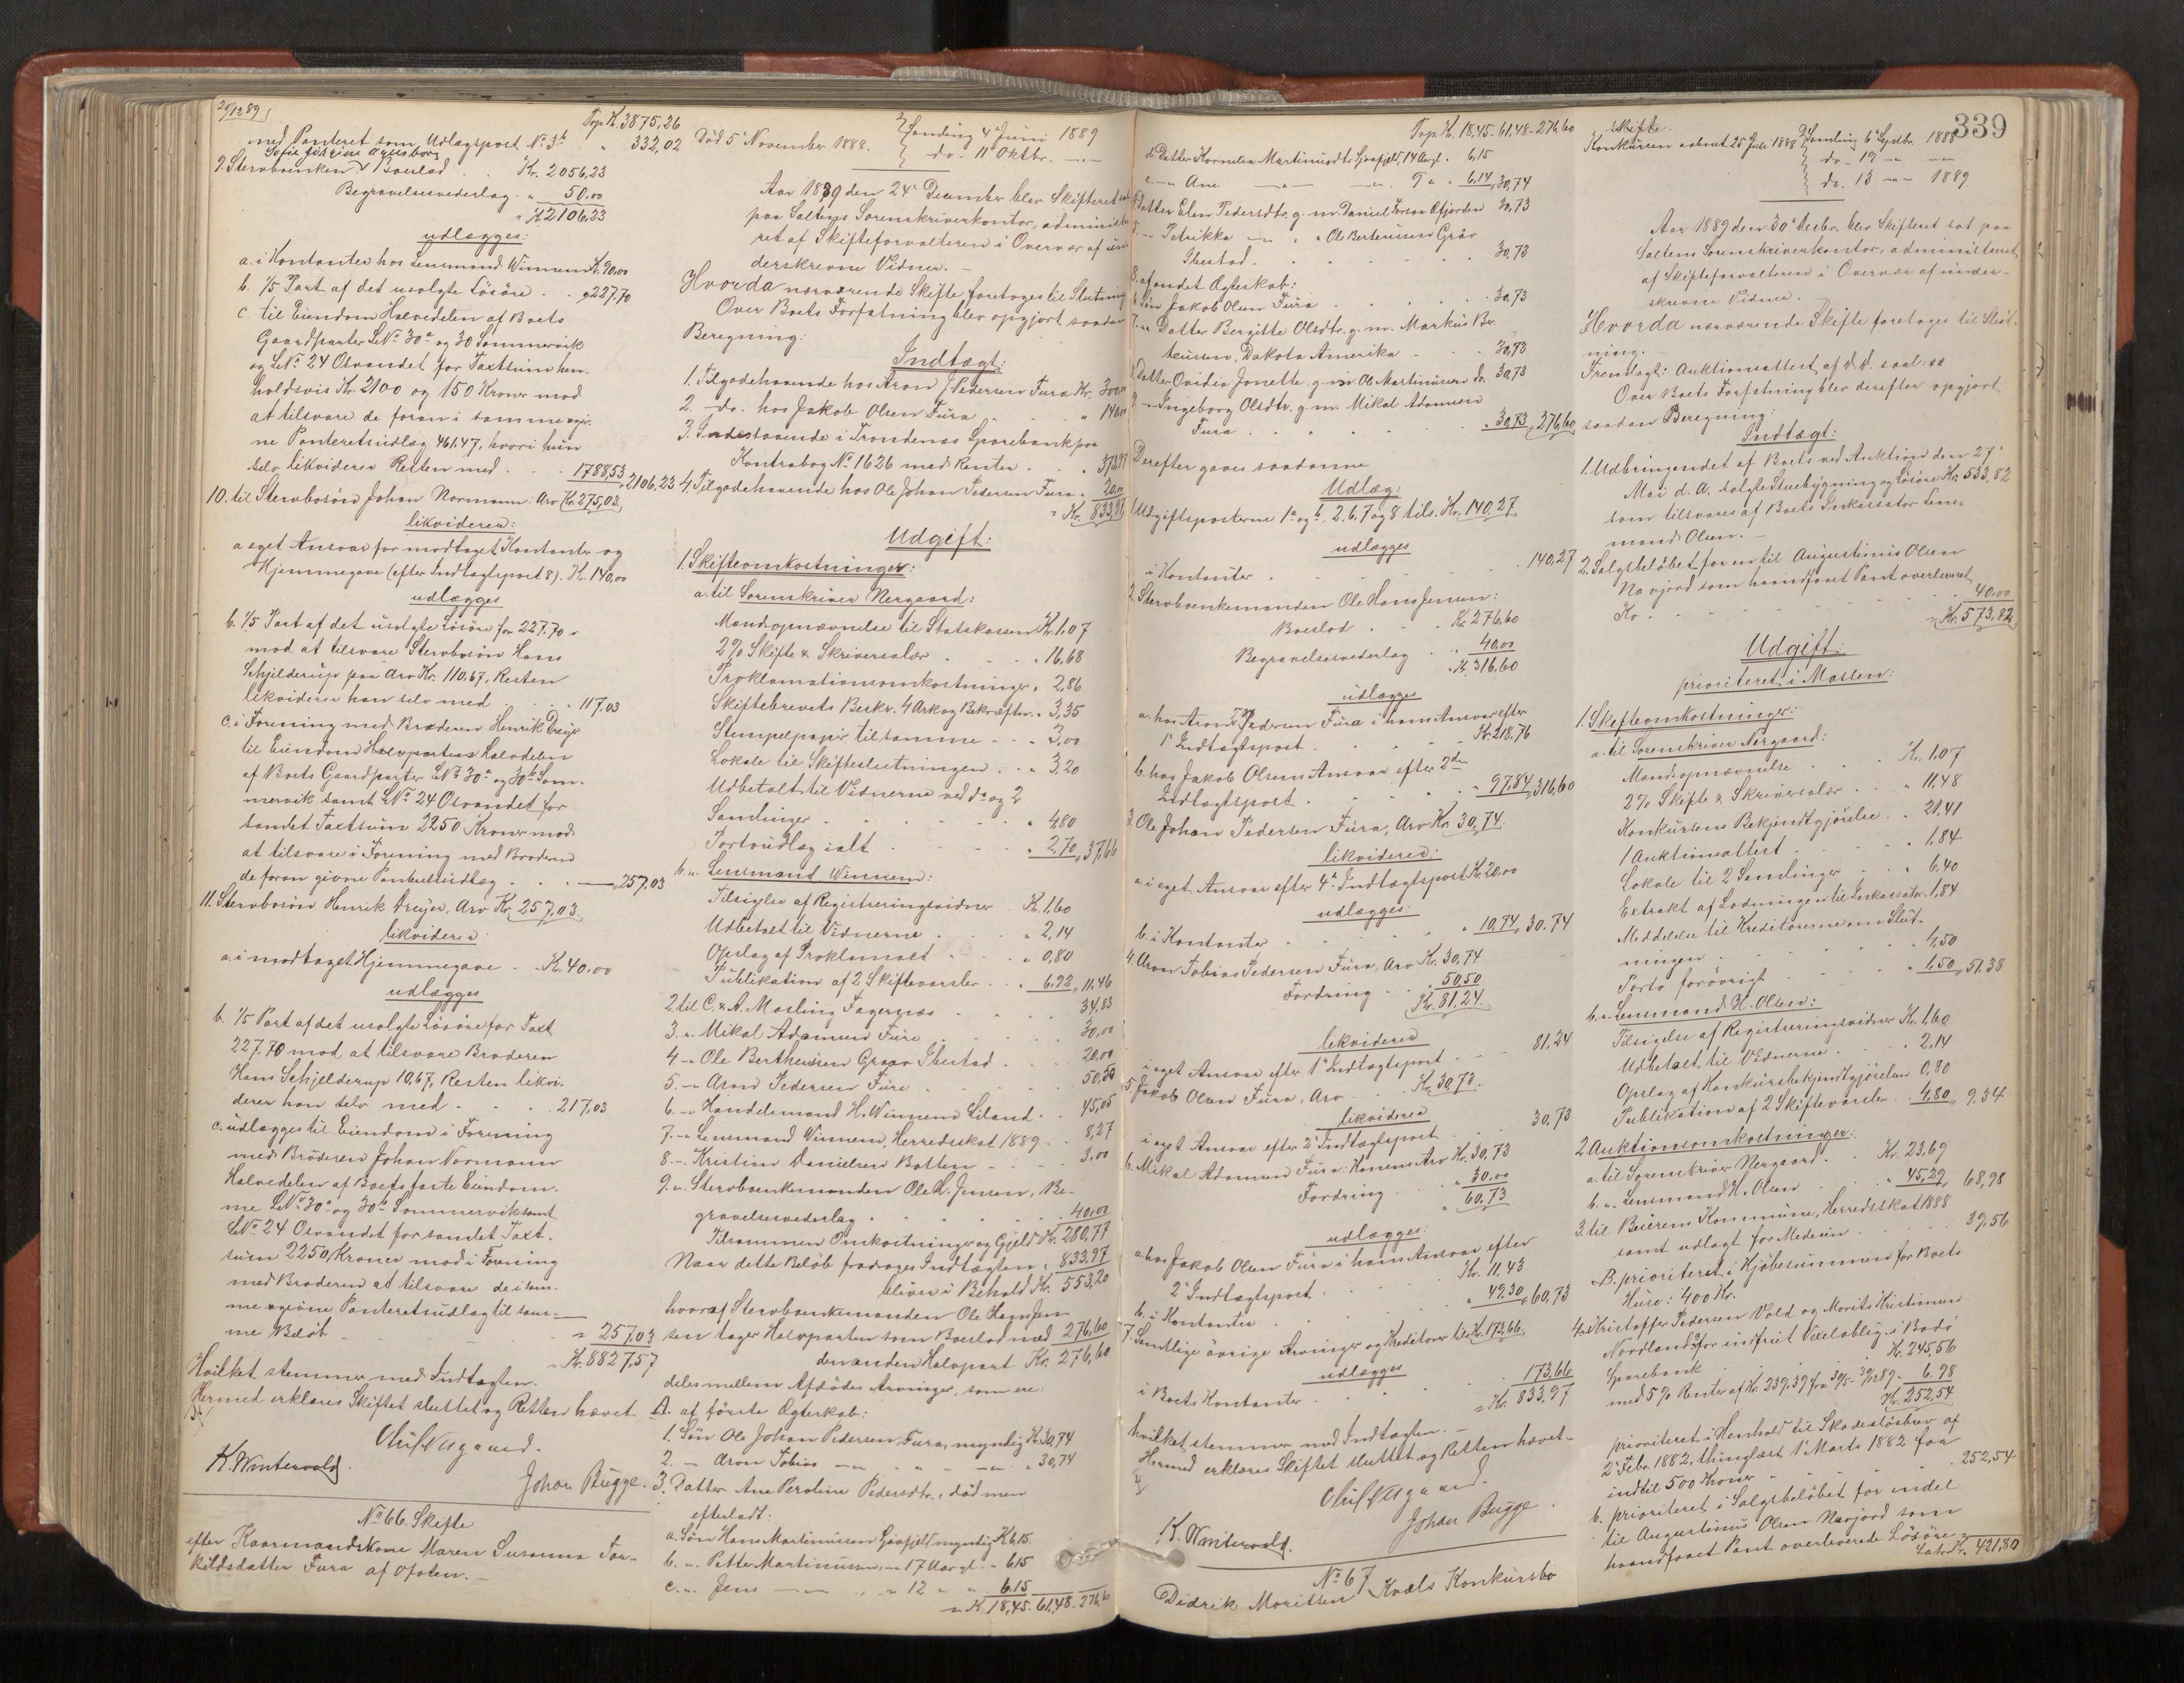 20/12 89
Trsp. Kr. 3875,26
med Panteret som Udlægspost No 3b " 332,02
Sofie Josefine Agersborg
9. Stervboenken Boeslod . Kr. 2056,23
Begravelsesvederlag . " 50,00
" Kr. 2106,23
udlægges:
a. i Kontanter hos Lensmand Winnem Kr. 90,00
b. 1/5 Part af det usolgte Løsøre . . " 227,70
c. til Eiendom Halvedelen af Boets
Gaardparter LNo 30a og 30 Sommervik
og LNo 24 Osvandet for Taxtsum hen-
holdsvis Kr. 2100 og 150 Kroner mod
at tilsvare de foran i samme agiv-
ne Panteretsudlæg 461.47, hvori hun
selv likviderer Resten med . . . 1788,53 " 2106.23
10. til Stervbosøn Johan Normann: Arv Kr. 275,03,
likviderer:
a. eget Ansvar for modtaget Kontanter og
Hjemmegave (efter Indtægtspost 8). Kr. 140,00
udlægges
b. 1/5 Part af det usolgte Løsøre for 227.70
mod at tilsvare Stervbosøn Hans
Schjelderup paa Arv Kr. 110.67. Resten
likviderer han selv med . . . 117.03
c. i Forening med Broderen Henrik Dreyer
til Eiendom Halvpartens Halvdelen
af Boets Gaardparter LNo 30a og 30b Som-
mervik samt LNo 24 Osvandet for
samlet Taxtsum 2250 Kroner mod
at tilsvare i Forening med Broderen
de foran givne Panteretsudlæg . . . — " 257.03
11. Stervbosøn Henrik Dreyer, Arv Kr. 257,03.
likviderer
a. i modtaget Hjemmegave . . Kr. 40.00
udlægges
b. 1/5 Part af det usolgte Løsøre for Taxt
227.70 mod at tilsvare Broderen
Hans Schjelderup 10,67, Resten likvi-
derer han selv med . . . . 217,03
c. udlægges til Eiendom i Forening
med Broderen Johan Normann
Halvedelen af Boets faste Eiendom-
me LNo 30a og 30b Sommervik samt
LNo 24 Osvandet for samlet Taxt-
sum 2250 Kroner mod i Forening
med Broderen at tilsvare de i sam-
me agivne Panteretsudlæg til sam-
me Beløb . . . " 257.03
" Kr. 8827,57
Hvilket stemmer med Indtægten.
Hermed erklæres Skiftet sluttet og Retten hævet
Oluf Nergaard.
K. Wintervold.
Johan Bugge.
No 66. Skifte
efter Kaarmandskone Maren Susanna Tor-
kildsdatter Fura af Ofoten.
Død 5 November 1888. { Samling 4 Juni 1889
do. 11 Oktbr. —
Aar 1889 den 24 December blev Skifteret sat
paa Saltens Sorenskriverkontor, administre-
ret af Skifteforvalteren i Overvær af un-
derskrevne Vidner.
Hvorda nærværende Skifte foretoges til Slutning
Over Boets Forfatning blev opgjort saadan
Beregning:
Indtægt:
1. Tilgodehavende hos Aron J. Pedersen Fura Kr. 300.00
2. do. hos Jakob Olsen Fura . . " 140.00
3. Indestaaende i Trondenæs Sparebank paa
Kontrabog No 1626 med Renter . . " 373,97
4. Tilgodehavende hos Ole Johan Pedersen Fura " 20.00
" Kr. 833,97
Udgift:
1. Skifteomkostninger:
a. til Sorenskriver Nergaard:
Mandsopnævnelse til Statskassen Kr. 1.07
2% Skifte & Skriversalær . . . " 16,68
Proklamationsomkostninger " 2,86
Skiftebrevets Beskr. 4 Ark og Bekræftn. " 3,35
Stempelpapir tilsammen . . . 3,00
Lokale til Skifteslutningen . . " 3,20
Udbetalt til Vidnerne ved do og 2
Samlinger . . . . " 4,80
Portoudlæg ialt . . . " 2,70 " 37,66
b. " Lensmand Winnem:
Tilsigelse af Registreringsvidner Kr. 1,60
Udbetalt til Vidnerne . . " 2,14
Opslag af Proklamaet . . . " 0,80
Publikation af 2 Skiftevarsler . . " 6.92 " 11,46
2. til C. & A. Mosling Fagernæs . . . 34,83
3. " Mikal Adamsen Fure . . . 30,00
4 " Ole Bertheusen Graar Ibestad . . 20.00
5. " Aron Pedersen Fure . . . 50,50
6. " Handelsmand H. Winnem Liland . . 45,05
7. " Lensmand Winnem, Herredsskat 1889 . . 8,27
8. " Kristian Danielsen Botten . . . 3.00
9. " Stervboenkemanden Ole H. Jensen, Be-
gravelsesvederlag . . . . 40.00
Tilsammen Omkostninger og Gjeld Kr. 280,77
Naar dette Beløb fradrages Indtægten " 833,97
bliver i Behold Kr. 553,20
hvoraf Stervboenkemanden Ole Hans Jen-
sen tager Halvparten som Boeslod med 276,60
den anden Halvpart Kr. 276,60
deles mellem Afdødes Arvinger, som ere:
A. af første Ægteskab:
1. Søn Ole Johan Pedersen Fura, myndig Kr. 30,74
2. " Aron Tobias — " — " — " 30,74
3. Datter Ane Peroline Pedersdtr., død men
efterladt:
a. Søn Hans Martinussen Gaafjeld myndig Kr. 6.15
b. " Petter Martinussen — 17 Aar gl. " 6,15
c. " Jens — " — " 12 " " 6.15
" Kr. 18,45. 61,48. 276,60
Trsp. Kr. 18,45 - 61,48 - 276,60
d. Datter Kornelia Martinusdtr. Gaafjeld, 14 Aar gl. 6,15
e. " Ane — " — " 9 " " 6.14 " 30,74
Datter Elen Pedersdtr. g. m. Daniel Efjorden 30,73
5. " Petrikka — " " Ole Berteussen Graar
Ibestad . . . . . 30,73
B. af andet Ægteskab:
6. Søn Jakob Olsen Fura . . . . 30,73
7. " Datter Bergitte Olsdtr. g. m. Markus Ber-
teussen, Dakota Amerika . . . 30,73
8. Datter Ovidia Jonette g. m. Ole Martinussen do. 30,73
9. " Ingeborg Olsdtr. g. m. Mikal Adamsen
Fura . . . . . " 30,73 " 276,60
Derefter gaves saadanne
Udlæg:
1. Udgiftsposterne 1a og b, 2, 6, 7 og 8 tils. Kr. 140,27
udlægges
i Kontanter . . . . . . 140,27
2. Stervboenkemanden Ole Hans Jensen:
Boeslod . . . Kr. 276,60
Begravelsesvederlag . . 40,00
" Kr. 316,60
udlægges
a. hos Aron T. Pedersen Fura i hans Ansvar efter
1ste Indtægtspost . . . . Kr. 218,76
b. hos Jakob Olsens Ansvar efter 2den
Indtægtspost . . . . " 97,84 " 316,60
3. Ole Johan Pedersen Fura, Arv Kr. 30,74.
likviderer:
a. i eget Ansvar efter 4de Indtægtspost Kr. 20,00
udlægges:
b. i Kontanter . . . . " 10,74 " 30.74
4. Aron Tobias Pedersen Fura, Arv Kr. 30,74
Fordring . . . 50,50
Kr. 81,24.
likviderer
i eget Ansvar efter 1ste Indtægtspost . . 81,24
5. Jakob Olsen Fura, Arv . . Kr. 30,73.
likviderer
i eget Ansvar efter 2 Indtægtspost . . 30,73
6. Mikal Adamsen Fura: Konens Arv Kr. 30,73
Fordring . . " 30.00
" 60,73
udlægges:
a. hos Jakob Olsen Fura i hans Ansvar efter
2 Indtægtspost . . . Kr. 11,43
b. i Kontanter . . . " 49,30 " 60,73
7. Samtlige øvrige Arvinger og Kreditorer tils. Kr. 173,66
udlægges
i Boets Kontanter . . . . 173,66
" Kr. 833,97
hvilket stemmer med Indtægten.
Hermed erklæres Skiftet sluttet og Retten hævet
Oluf Nergaard
K. Wintervold.
Johan Bugge.
No 67
Didrik Moritsen Kvæls Konkursbo
339
skifte.
Konkursen aabnet 25 Juli 1888 { Samling 6 Septbr. 1888
do. 19 — " —
do. 13 — " — 1889
Aar 1889 den 30 Decbr. blev Skifteret sat paa
Saltens Sorenskriverkontor, administreret
af Skifteforvalteren i Overvær af under-
skrevne Vidner.
Hvorda nærværende Skifte foretoges til Slut-
ning.
Fremlagt: Auktionsattest af d. d. saal.
Over Boets Forfatning blev derefter opgjort
saadan Beregning:
Indtægt:
1. Udbringendet af Boets ved Auktion den 27
Mai d. A. solgte Stuebygning og Løsøre Kr. 533,82
som tilsvares af Boets Inkassator Lens-
mand Olsen.
2. Salgsbeløbet for en til Augustinus Olsen
Navjord som haandfaaet Pant overleveret
Ko . . . . . . 40,00
" Kr. 573,82
Udgift:
prioriteret i Massen:
1. Skifteomkostninger:
a. til Sorenskriver Nergaard:
Mandsopnævnelse . . . Kr. 1,07
2% Skifte & Skriversalær . . " 11,48
Konkursens Bekjendtgjørelse . " 21,41
1 Auktionsattest . . . " 1,84
Lokale til 2 Samlinger . . " 6,40
Extrakt af Ladningen til Inkassator " 1,84
Meddelelse til Kreditorerne om Slut-
ningen . . . . . " 4,50
Porto forøvrigt . . . " 1,50 " 51.38
b. " Lensmand H. Olsen:
Tilsigelse af Registreringsvidner Kr. 1,60
Udbetalt til Vidnerne . . " 2,14
Opslag af Konkursbekjendtgjørelsen 0,80
Publikation af 2 Skiftevarsler . . 4,80 " 9,34
2. Auktionsomkostninger:
a. til Sorenskriver Nergaard . . Kr. 23,69
b. " Lensmand H. Olsen . . " 45,29 " 68,98
3. til Beierens Kommune, Herredsskat 1888
samt udlagt for Medicin . . . 39,56
B. prioriteret i Kjøbesummen for Boets
Huse: 400 Kr.
4. a. Kristoffer Pedersen Vold og Morits Kristiansen
Nordland for indfriet Vexeloblig. i Bodø
Sparebank . . . . Kr. 245,56
med 5% Renter af Kr. 239.39 fra 30/5 - 30/12 89 " 6.98
Kr. 252,54
prioriteret i Henhold til Skadesløsbrev af
2 Febr. 1882, thinglæst 1 Marts 1882 for
indtil 500 Kroner . . . . . 252,54
b. prioriteret i Salgsbeløbet for en del
til Augustinus Olsen Navjord som
haandfaaet Pant overleverede Løsøre
Latus Kr. 421.80